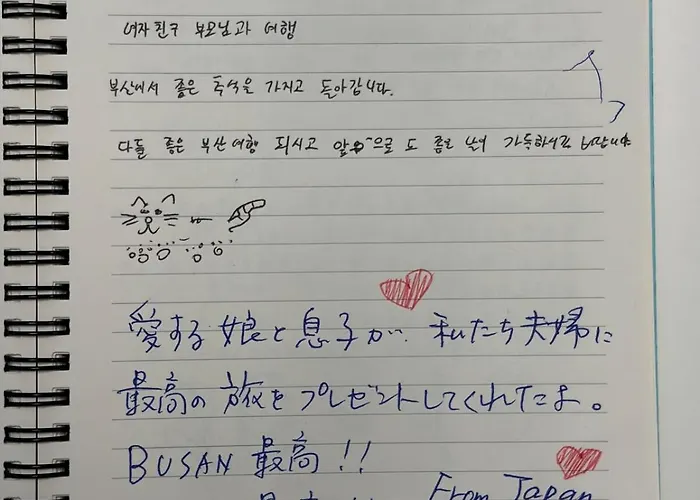 여자친구 부모님과 여행
부산에서 좋은 추석을 가지고 돌아갑니다.
다들 좋은 부산여행 되시고 앞으로 도 좋은 날이 가득하시길 바랍니다
愛する娘と息子が、私たち夫婦に
最高の旅をプレゼントしてくれたよ。
BUSAN 最高!!
From Japan